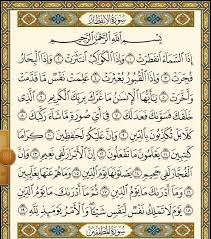 سُورَةُ الِانفِطَارِ
بِسْمِ اللَّهِ الرَّحْمَٰنِ الرَّحِيمِ
إِذَا ٱلسَّمَآءُ ٱنفَطَرَتْ ١ وَإِذَا ٱلْكَوَاكِبُ ٱنتَثَرَتْ ٢ وَإِذَا ٱلْبِحَارُ
فُجِّرَتْ ٣ وَإِذَا ٱلْقُبُورُ بُعْثِرَتْ ٤ عَلِمَتْ نَفْسٌ مَّا قَدَّمَتْ
وَأَخَّرَتْ ٥ يَٰٓأَيُّهَا ٱلْإِنسَٰنُ مَا غَرَّكَ بِرَبِّكَ ٱلْكَرِيمِ ٦ ٱلَّذِى
خَلَقَكَ فَسَوَّىٰكَ فَعَدَلَكَ ٧ فِىٓ أَىِّ صُورَةٍ مَّا شَآءَ رَكَّبَكَ ٨
كَلَّا بَلْ تُكَذِّبُونَ بِٱلدِّينِ ٩ وَإِنَّ عَلَيْكُمْ لَحَٰفِظِينَ ١٠ كِرَامًا
كَٰتِبِينَ ١١ يَعْلَمُونَ مَا تَفْعَلُونَ ١٢ إِنَّ ٱلْأَبْرَارَ لَفِى نَعِيمٍ ١٣ وَإِنَّ
ٱلْفُجَّارَ لَفِى جَحِيمٍ ١٤ يَصْلَوْنَهَا يَوْمَ ٱلدِّينِ ١٥ وَمَا هُمْ عَنْهَا بِغَآئِبِينَ
١٦ وَمَآ أَدْرَىٰكَ مَا يَوْمُ ٱلدِّينِ ١٧ ثُمَّ مَآ أَدْرَىٰكَ مَا يَوْمُ ٱلدِّينِ
١٨ يَوْمَ لَا تَمْلِكُ نَفْسٌ لِّنَفْسٍ شَيْـًٔا وَٱلْأَمْرُ يَوْمَئِذٍ لِّلَّهِ ١٩
سُورَةُ المُطَفِّفِينَ